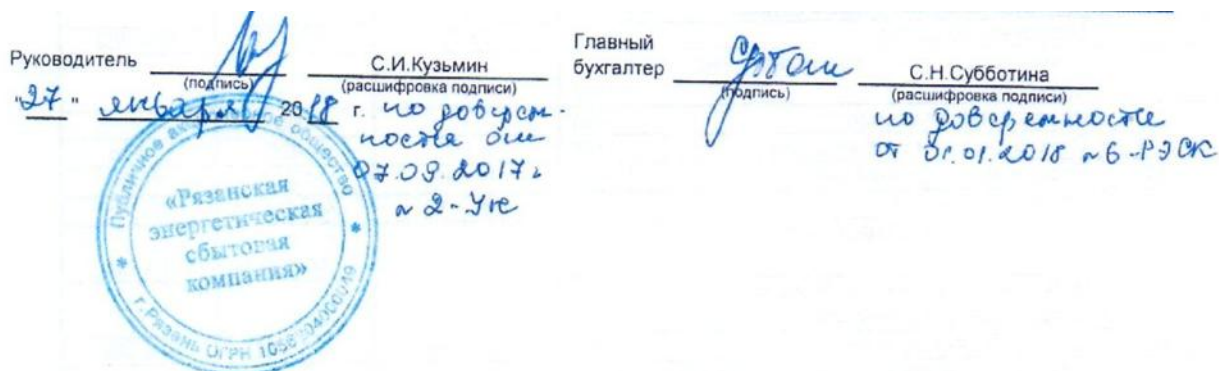 Руководитель
(подпись)
С.И.Кузьмин
(расшифровка подписи)
"27" января 2018 г.
по доверен-
ности от
07.09.2017г
№ 2-УК
Главный
бухгалтер
(подпись)
С.Н.Субботина
(расшифровка подписи)
по доверенности
от 01.01.2018 № 6-РЭСК
Публичное акционерное общество
«Рязанская
энергетическая
сбытовая
компания»
г.Рязань ОГРН